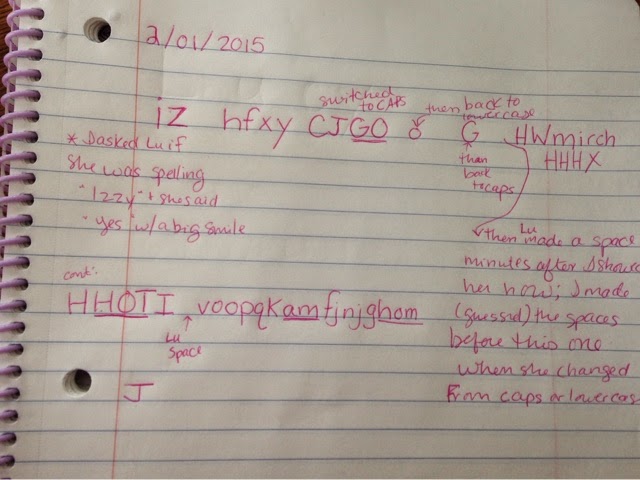 2/01/2015
switched to CAPS
then back to lowercase
iz hfxy CJGO o G HWmirch
HHHX
then back to caps
* I asked Lu if
she was spelling
"Izzy" + she said
"yes" w/a big smile
then Lu made a space
minutes after I showed
her how; I made
(guessed) the spaces
before this one
when she changed
from caps or lowercase
cont.
HHOTI voopqkamfjnjghom
Lu
space
J